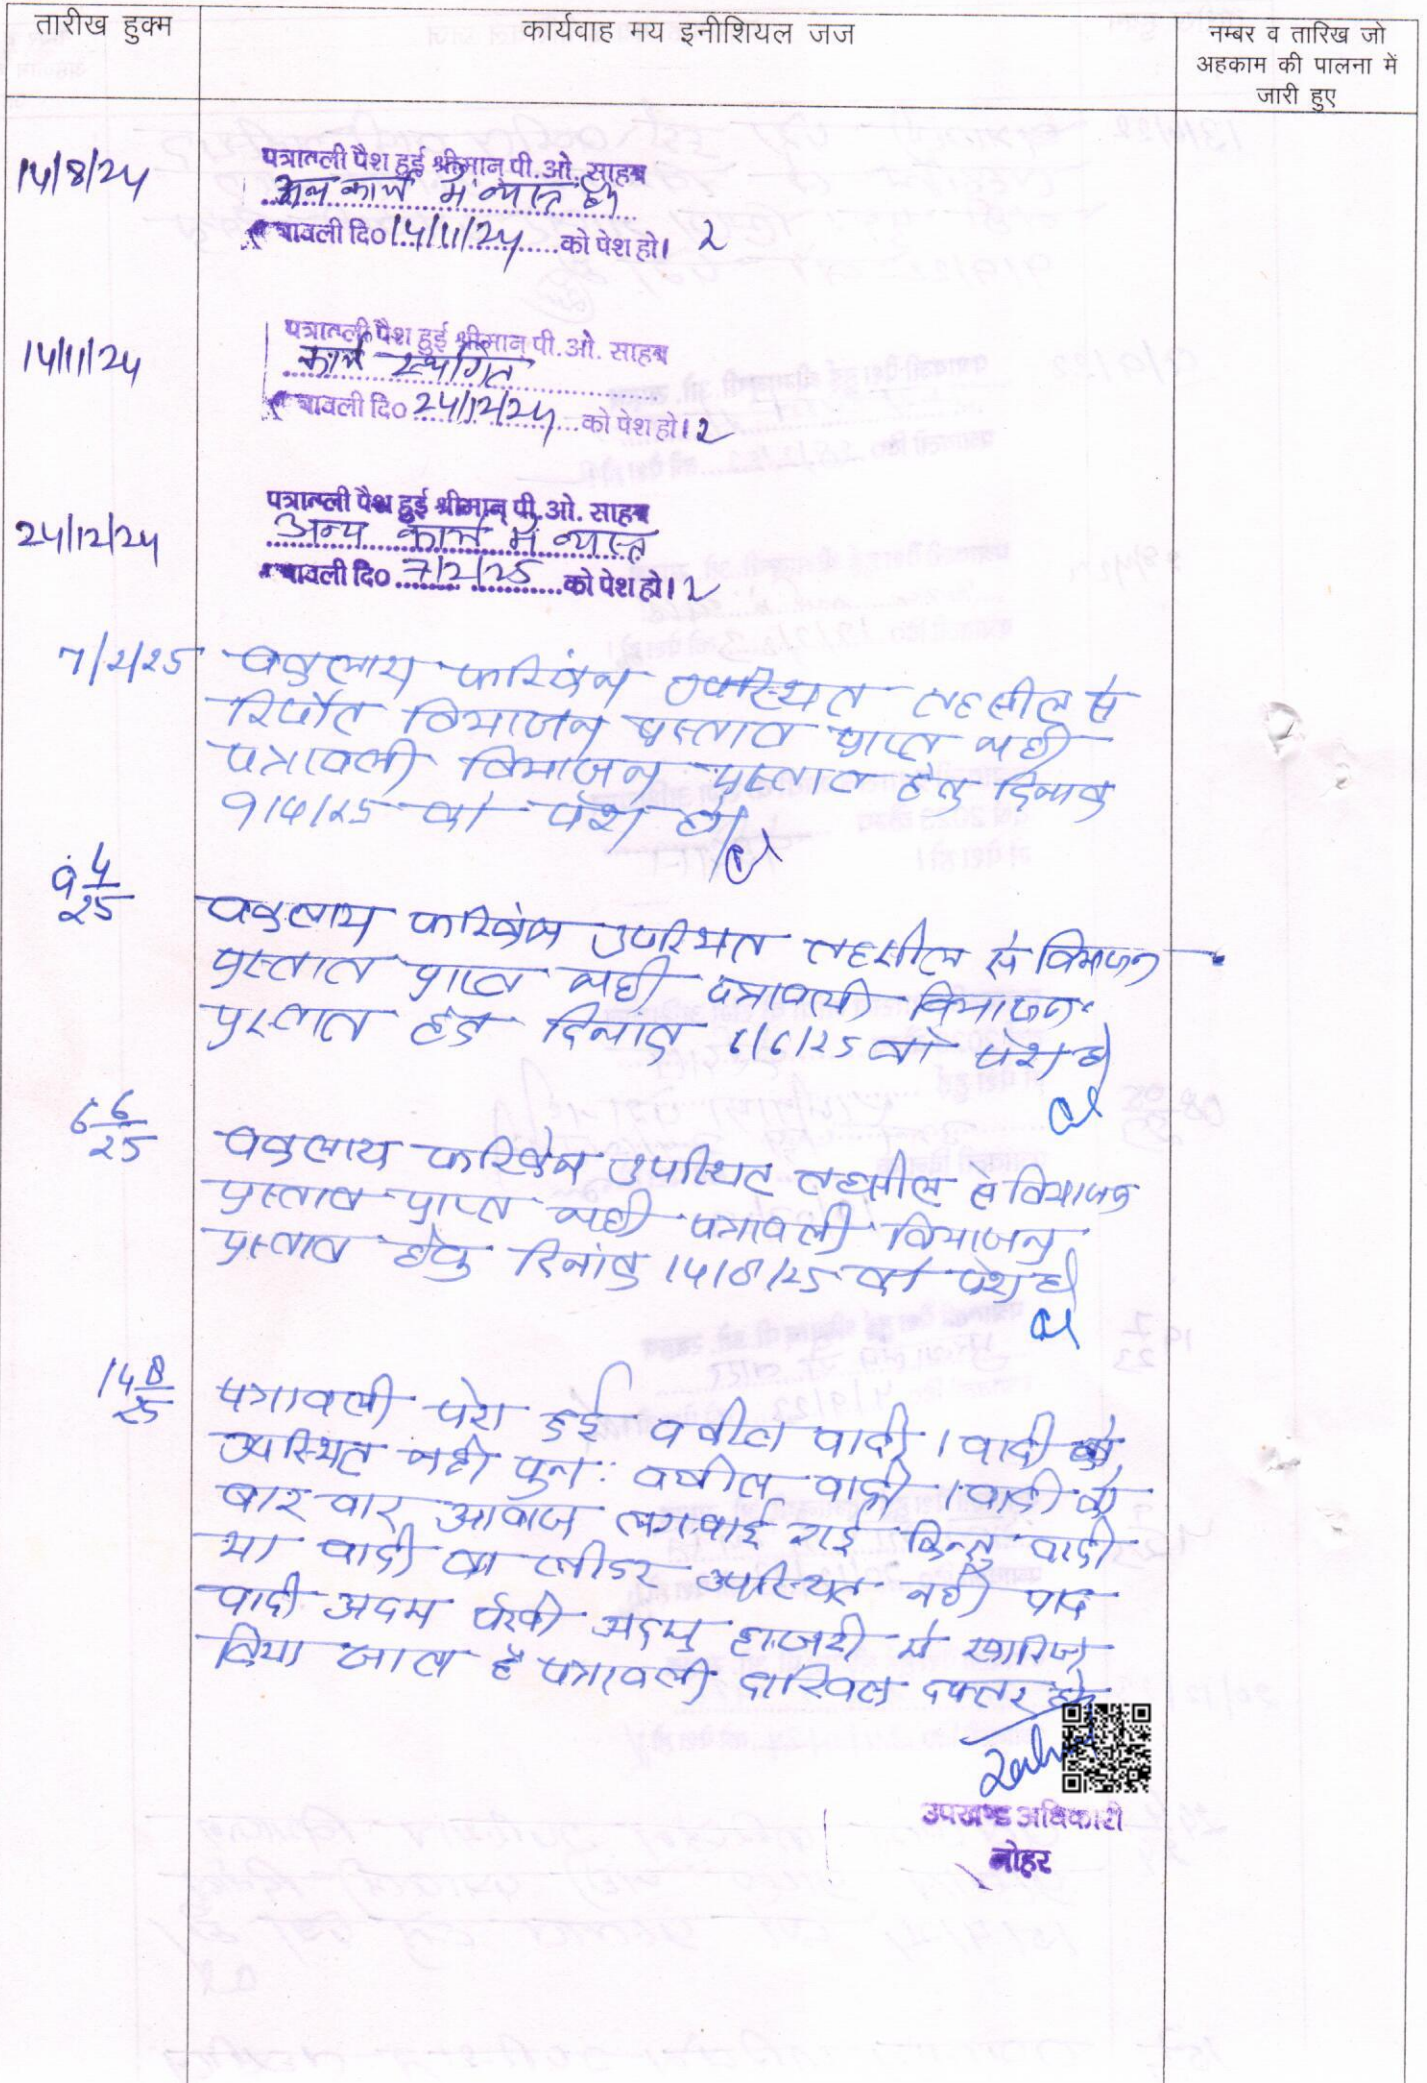 तारीख हुक्म
कार्यवाह मय इनीशियल जज
नम्बर व तारिख जो
अहकाम की पालना में
जारी हुए
14/8/24
पत्रावली पैश हुई श्रीमान् पी.ओ. साहब
अन्य कार्य में व्यस्त है
पत्रावली दि० 14/11/24 को पेश हो।
14/11/24
पत्रावली पैश हुई श्रीमान् पी.ओ. साहब
कार्य स्थगित
पत्रावली दि० 24/12/24 को पेश हो।
24/12/24
पत्रावली पैश हुई श्रीमान् पी.ओ. साहब
अन्य कार्य में व्यस्त
पत्रावली दि० 7/2/25 को पेश हो।
7/2/25 वकुलाय फरिकेन उपस्थित तहसील से
रिपोर्ट विभाजन प्रस्ताव प्राप्त नही
पत्रावली विभाजन प्रस्ताव हेतु दिनांक
9/4/25 को पेश हो
9 4/25
वकुलाय फरिकेन उपस्थित तहसील से विभाजन
प्रस्ताव प्राप्त नही पत्रावली विभाजन
प्रस्ताव हेतु दिनांक 6/6/25 को पेश हो
6 6/25
वकुलाय फरिकेन उपस्थित तहसील से विभाजन
प्रस्ताव प्राप्त नही पत्रावली विभाजन
प्रस्ताव हेतु दिनांक 14/8/25 को पेश हो
14 8/25
पत्रावली पेश हुई वकील वादी / वादी
उपस्थित नही पुनः वकील वादी / वादी को
बार बार आवाज लगवाई गई किन्तु वादी
या वादी का लीडर उपस्थित नही वाद
वादी अदम पैरवी अदम हाजरी में खारिज
किया जाता है पत्रावली दाखिल दफ्तर हो
उपखण्ड अधिकारी
नोहर